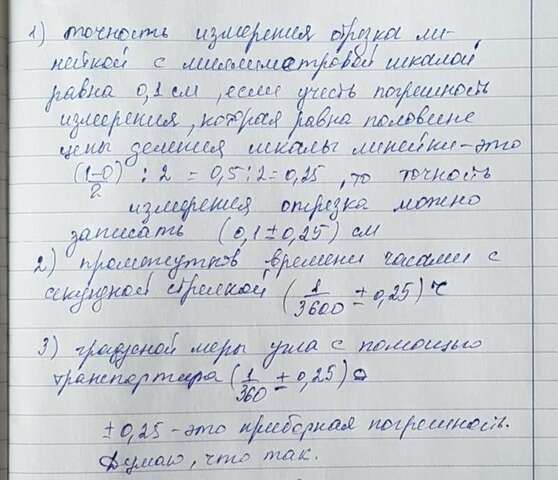 1) точность измерения отрезка ли-
нейкой с миллиметровой шкалой
равна 0,1 см, если учесть погрешность
измерения, которая равна половине
цены деления шкалы линейки-это
(1-0)/2 : 2 = 0,5:2=0,25, то точность
измерения отрезка можно
записать (0,1±0,25) см
2) промежутков времени часами с
секундной стрелкой (1/3600 ± 0,25) ч
3) градусной меры угла с помощью
транспортира (1/360 ± 0,25)°
±0,25 - это приборная погрешность.
Думаю, что так.